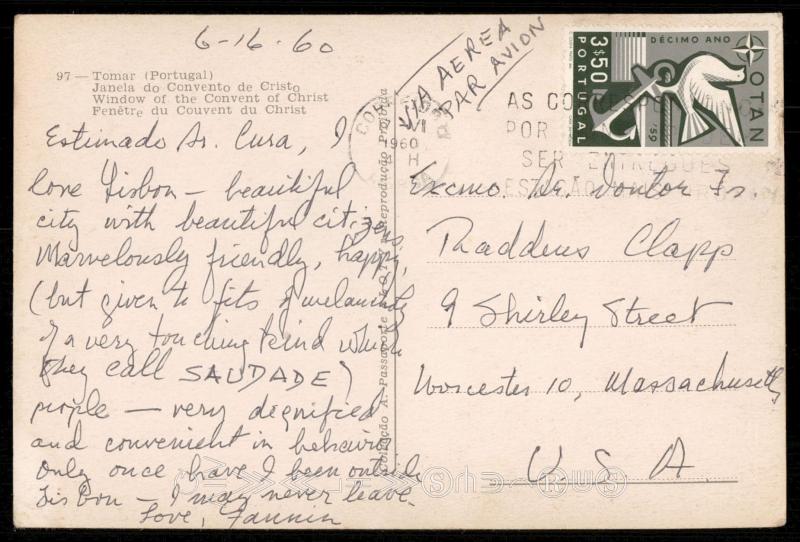 6-16-60
97 — Tomar (Portugal)
Janela do Convento de Cristo
Window of the Convent of Christ
Fenêtre du Couvent du Christ
Estimado Sr. Cura, I
love Lisbon — beautiful
city with beautiful citizens.
Marvelously friendly, happy,
(but given to fits of melancholy
of a very touching kind which
they call SAUDADE)
people — very dignified
and convenient in behavior.
Only once have I been outside
Lisbon — I may never leave.
Love, Fannin
Colecção A. Passaporte Reprodução Proibida
VIA AEREA
PAR AVION
1960
AS
POR
SER ENTREGUES
ESTAÇÃO
DÉCIMO ANO
OTAN
3$50
PORTUGAL
Excmo. Sr. Doutor Fs.
Thaddeus Clapp
9 Shirley Street
Worcester 10, Massachusetts
U. S. A.